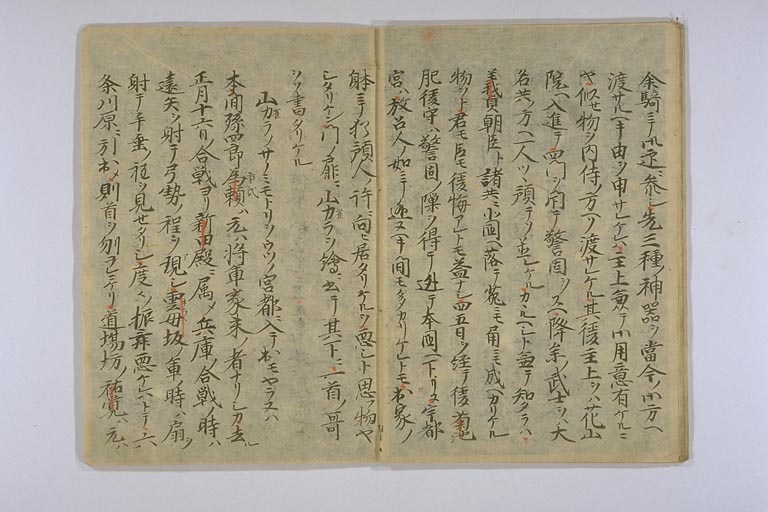 余騎ニテ御迎ニ参シ先三種ノ神器ヲ當今ノ御方ヘ
渡サルヘキ由ヲ申サレケレハ主上兼テ御用意有ケルニ
ヤ似セ物ヲ内侍ノ方ヘソ渡サレケル其後主上ヲハ花山
院ヘ入進テ四門ヲ閉テ警固ヲスヘ降参ノ武士ヲハ大
名共ノ方ヘ一人ツヽ預テ
義貞朝臣ト諸共ニ北国ヘ落テ菟モ角モ成ヘカリケル
物ヲト君モ臣モ後悔アレトモ益ナシ四五日ヲ経テ後菊池
肥後守ハ警固ノ隙ヲ得テ逃テ本国ヘトリヌ宇都
宮ハ放召人ノ如ニテ逃ヌヘキ間モ多カリケレトモ出家ノ
躰ニテ徒預人ノ許ニ向ヒ居タリケルヲ悪シト思物ヤ
シタリケン門ノ扉ニ山カラヲ絵ニ書テ其下ニ一首ノ哥
ヲソ書タリケル
山カラノサノミモトリヲウツノ宮都ニ入テ出モヤラヌハ
本間孫四郎為頼ハ元ハ将軍家来ノ者ナリシカ去ル
正月十六日ノ合戦ヨリ新田殿ニ属シ兵庫ノ合戦ノ時ハ
遠矢ヲ射テ弓勢ノ程ヲ現シ雲母坂ノ軍ノ時ハ扇ヲ
射テ手垂ノ程ヲ見セタリシ度々ノ振舞悪ケレハトテ六
条川原ニ引出メ則首ヲ刎ラレニケリ道場坊ノ祐覚ハ元ハ